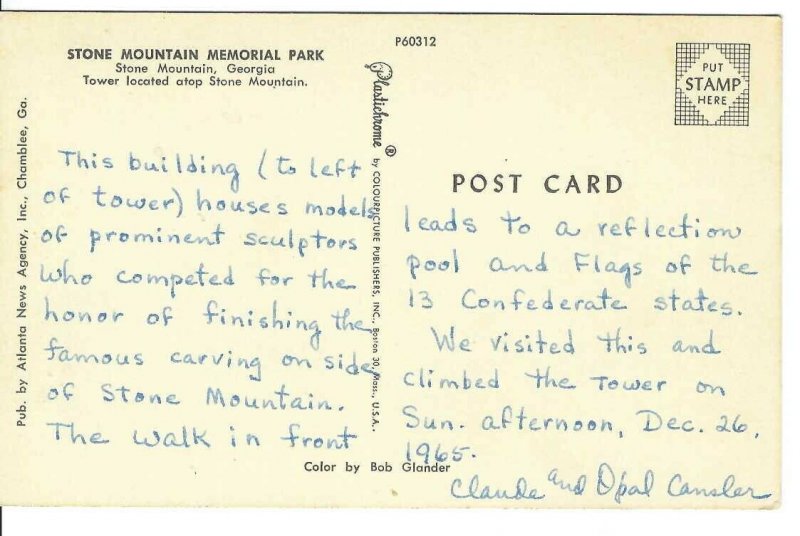 P60312
STONE MOUNTAIN MEMORIAL PARK
Stone Mountain, Georgia
Tower located atop Stone Mountain.
PUT
STAMP
HERE
Pub. by Atlanta News Agency, Inc., Chamblee, Ga.
Plastichrome ® by COLOURPICTURE PUBLISHERS, INC., Boston 30, Mass., U.S.A.
POST CARD
This building (to left
of tower) houses models
of prominent sculptors
who competed for the
honor of finishing the
famous carving on side
of Stone Mountain.
The walk in front
leads to a reflection
pool and Flags of the
13 Confederate states.
We visited this and
climbed the Tower on
Sun. afternoon, Dec. 26,
1965.
Claude and Opal Cansler
Color by Bob Glander